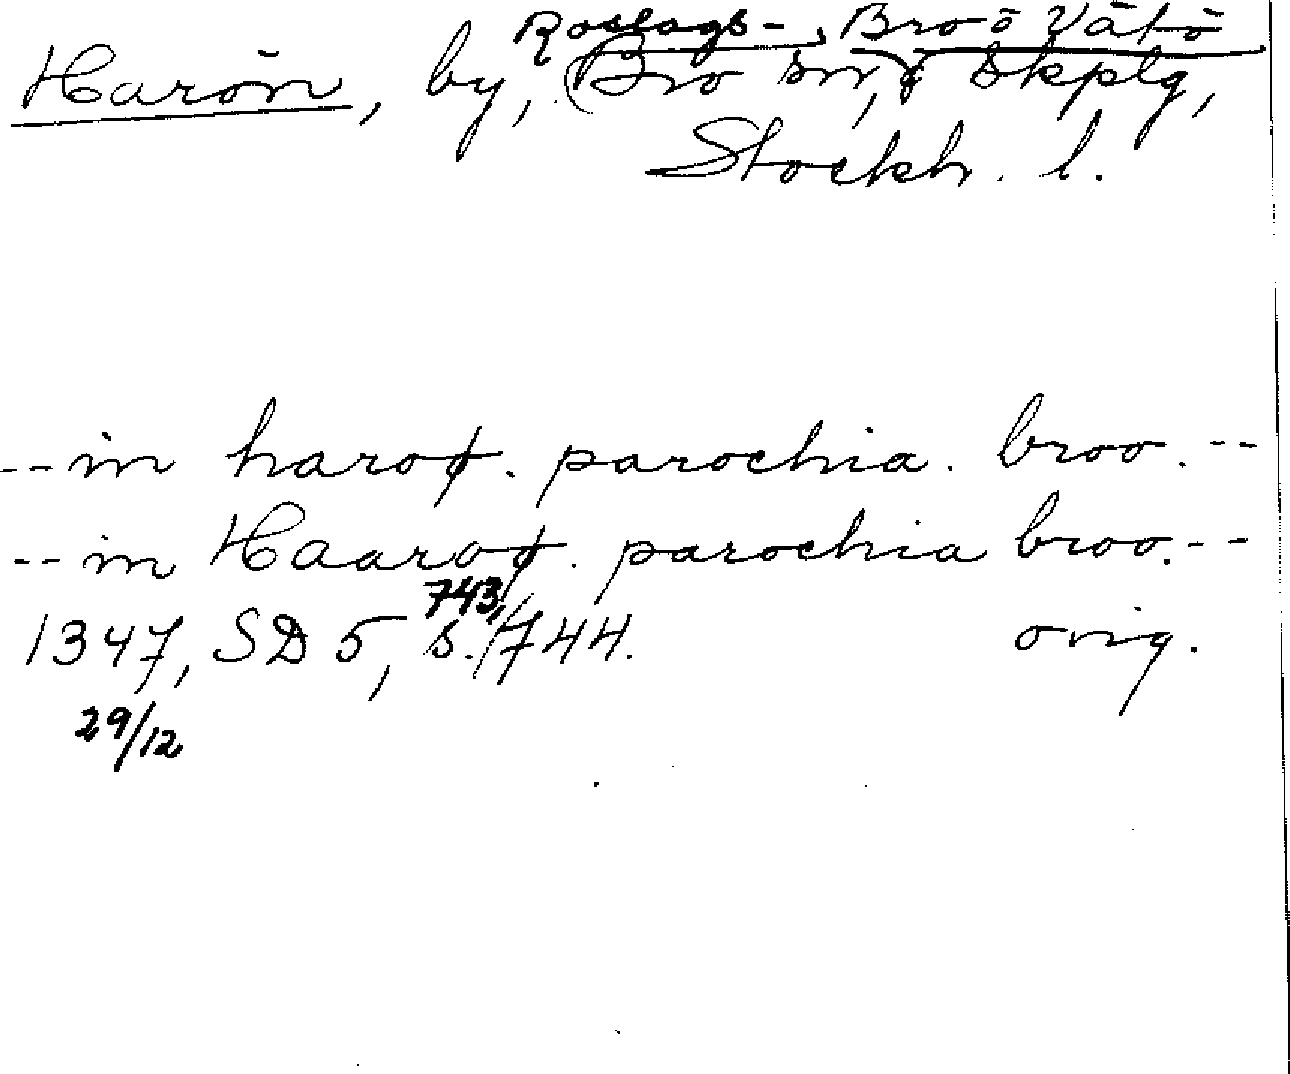 Roslags-, Bro o Vätö
Harön, by, (Bro sn, o skplg,
Stockh. l.
--in haroø. parochia. broo. --
--in Haaroø. parochia broo. --
743,
1347, SD 5, s. 744. orig.
29/12